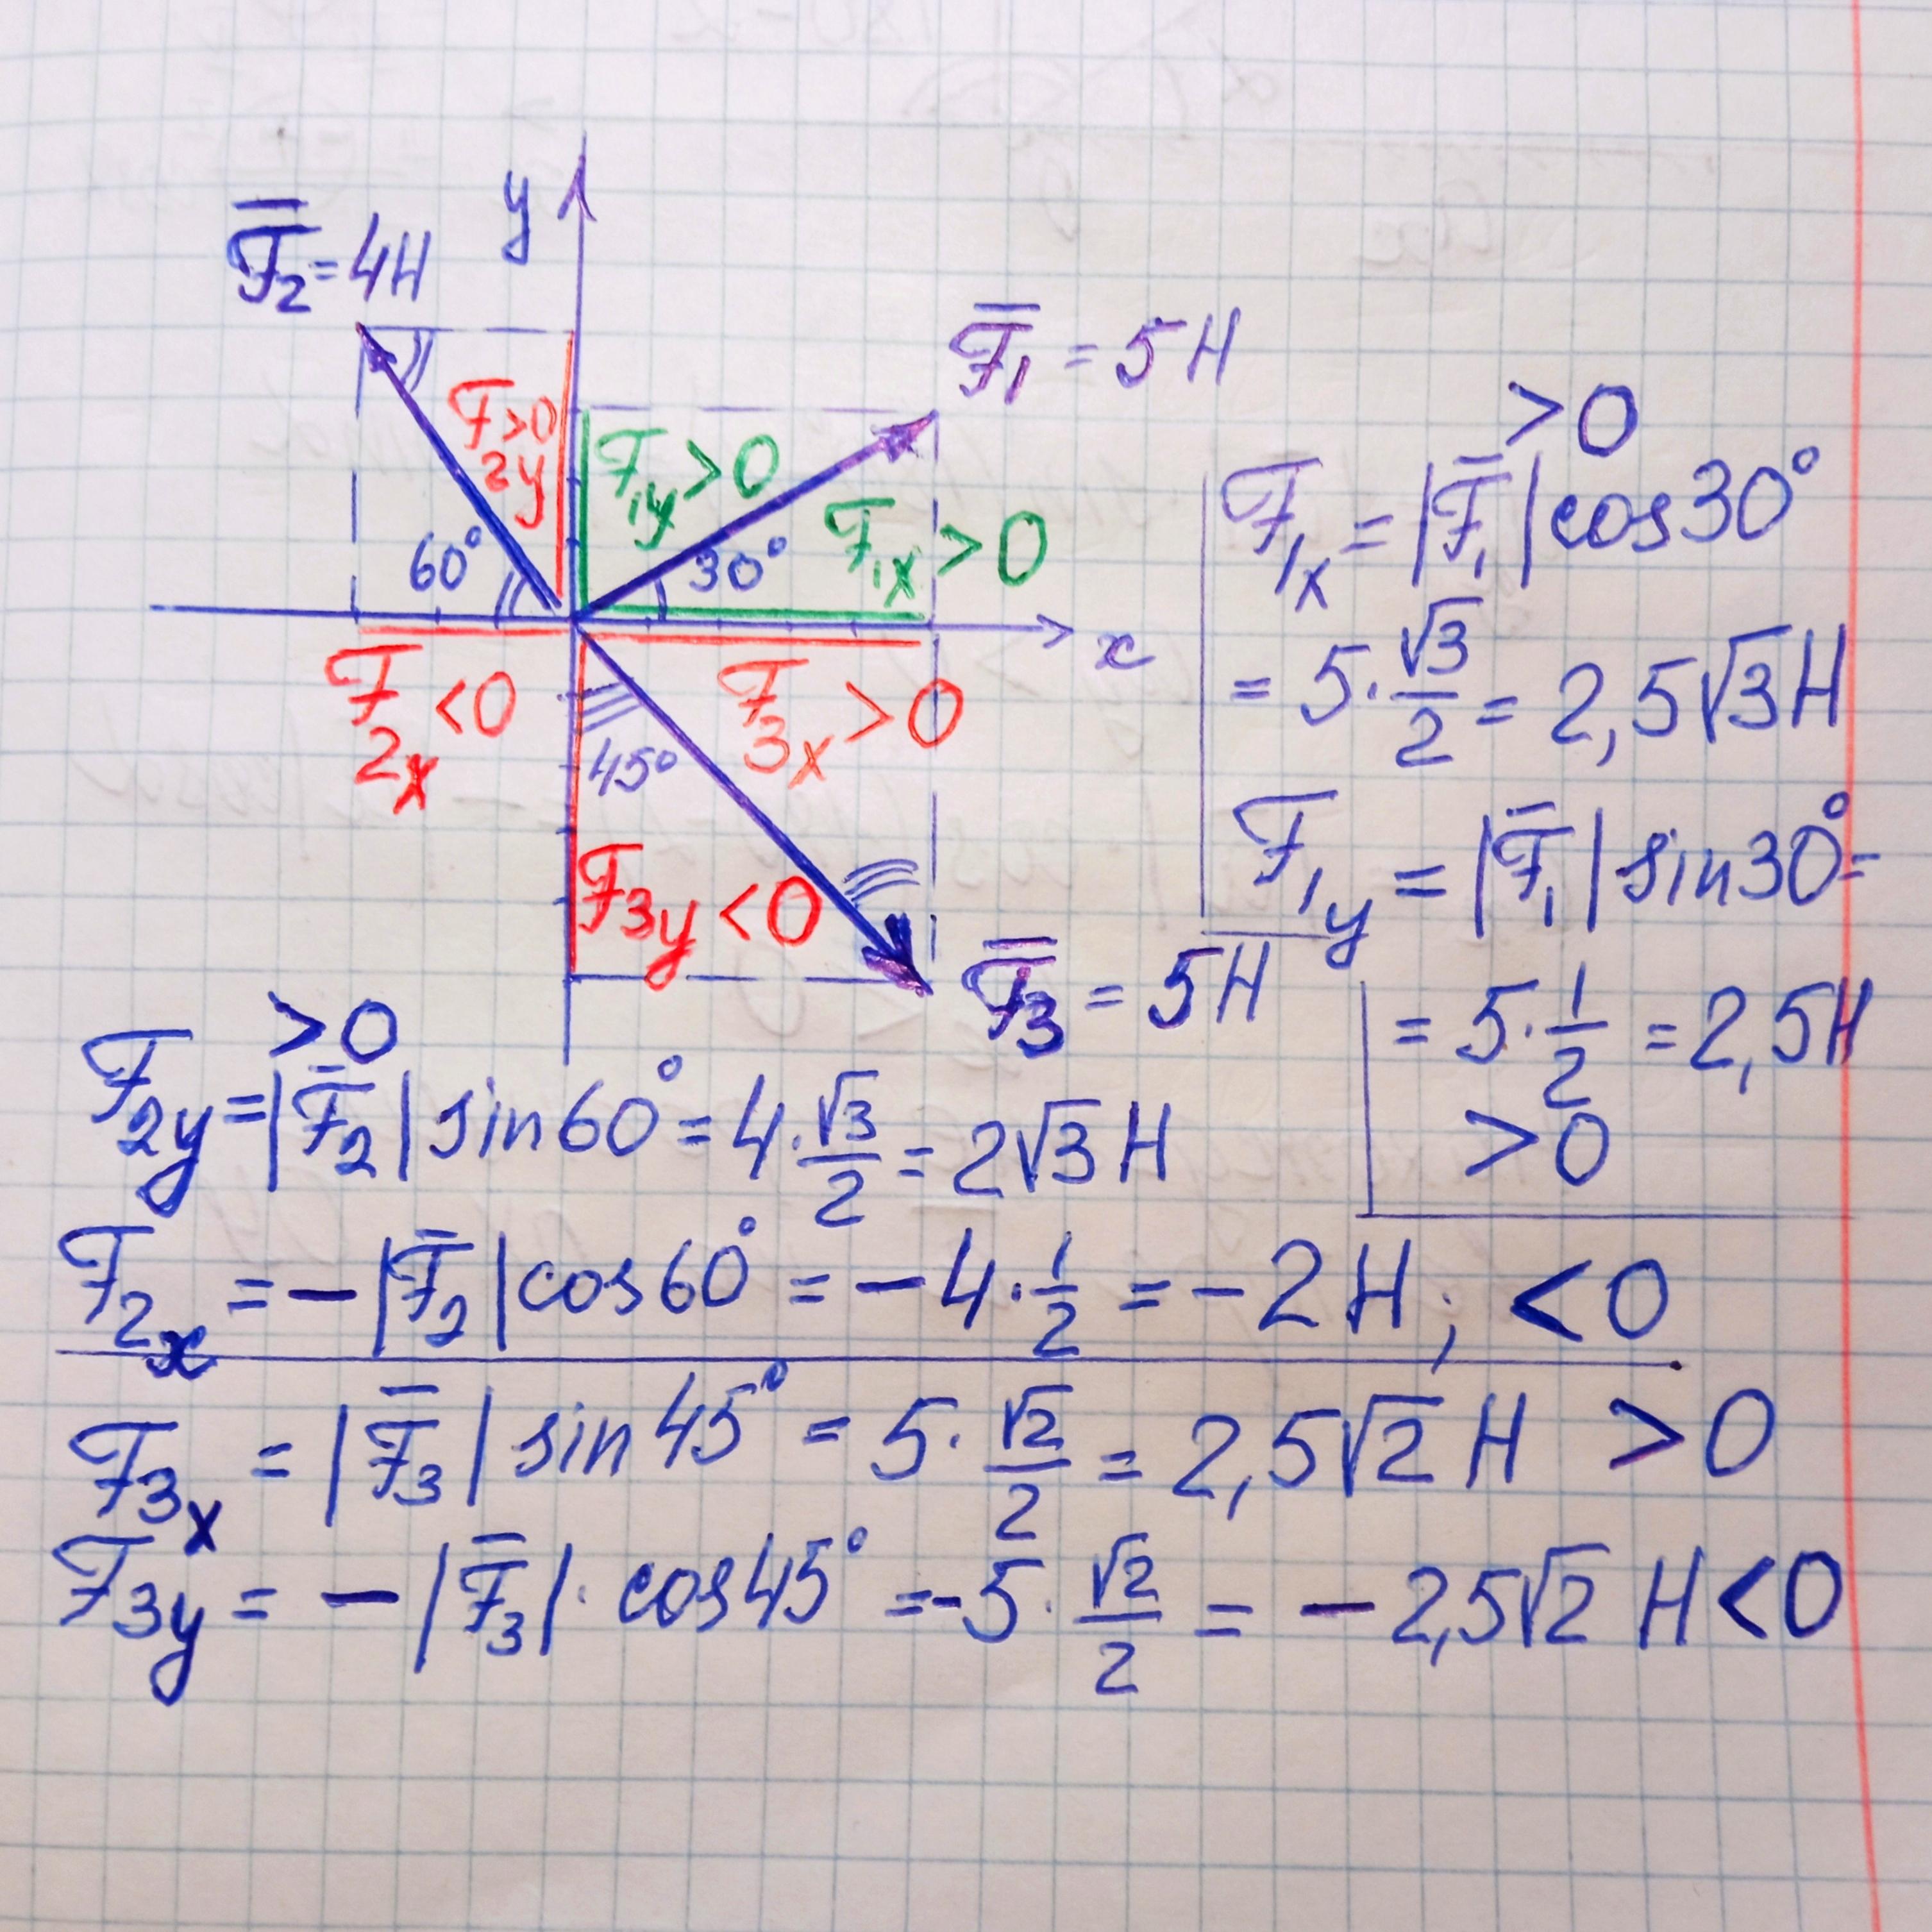 y
F̅₂ = 4H
F̅₁ = 5H
F₂y > 0
F₁y > 0
F₁x > 0
60°
30°
x
F₂x < 0
F₃x > 0
45°
F₃y < 0
F̅₃ = 5H
> 0
F₁x = |F̅₁| cos30°
= 5·√3/2 = 2,5√3 H
F₁y = |F̅₁| sin30° =
= 5·1/2 = 2,5H
> 0
> 0
F₂y = |F̅₂| sin60° = 4·√3/2 = 2√3 H
F₂x = -|F̅₂| cos60° = -4·1/2 = -2H; < 0
F₃x = |F̅₃| sin45° = 5·√2/2 = 2,5√2 H > 0
F₃y = -|F̅₃|· cos45° = -5·√2/2 = -2,5√2 H < 0